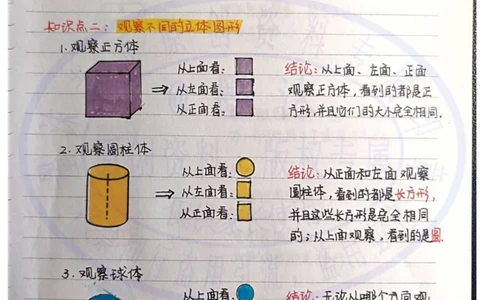 知识点二：观察不同的立体图形
1.观察正方体
从上面看：
从左面看：
从正面看：
结论：从上面、左面、正面
观察正方体，看到的都是正
方形，并且它们的大小完全相同.
2.观察圆柱体
从上面看：
从左面看：
从正面看：
结论：从正面和左面观察
圆柱体，看到的都是长方形，
并且这些长方形是完全相同
的；从上面观察，看到的是圆.
3.观察球体
从上面看：
结论：无论从哪个方向观